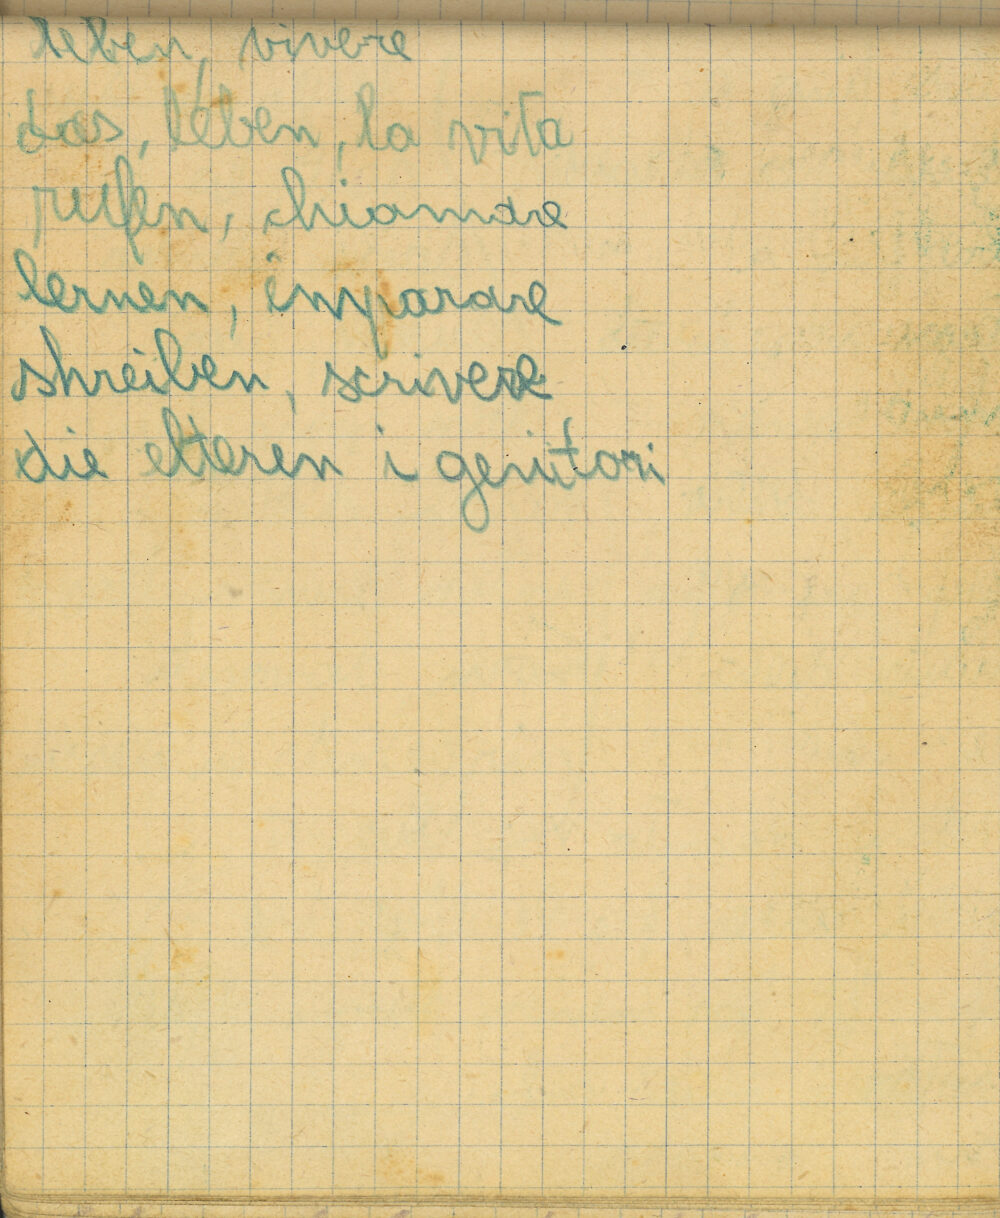 leben, vivere
das, leben, la vita
rufen, chiamare
lernen, imparare
shreiben, scrivere
die elteren i genitori